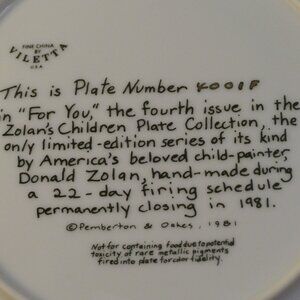 FINE CHINA
BY
VILETTA
U.S.A.
This is Plate Number 4001F
in "For You," the fourth issue in the
Zolan's Children Plate Collection, the
only limited-edition series of its kind
by America's beloved child-painter,
Donald Zolan, hand-made during
a 22-day firing schedule
permanently closing in 1981.
©Pemberton & Oakes, 1981
Not for containing food due to potential
toxicity of rare metallic pigments
fired into plate for color fidelity.